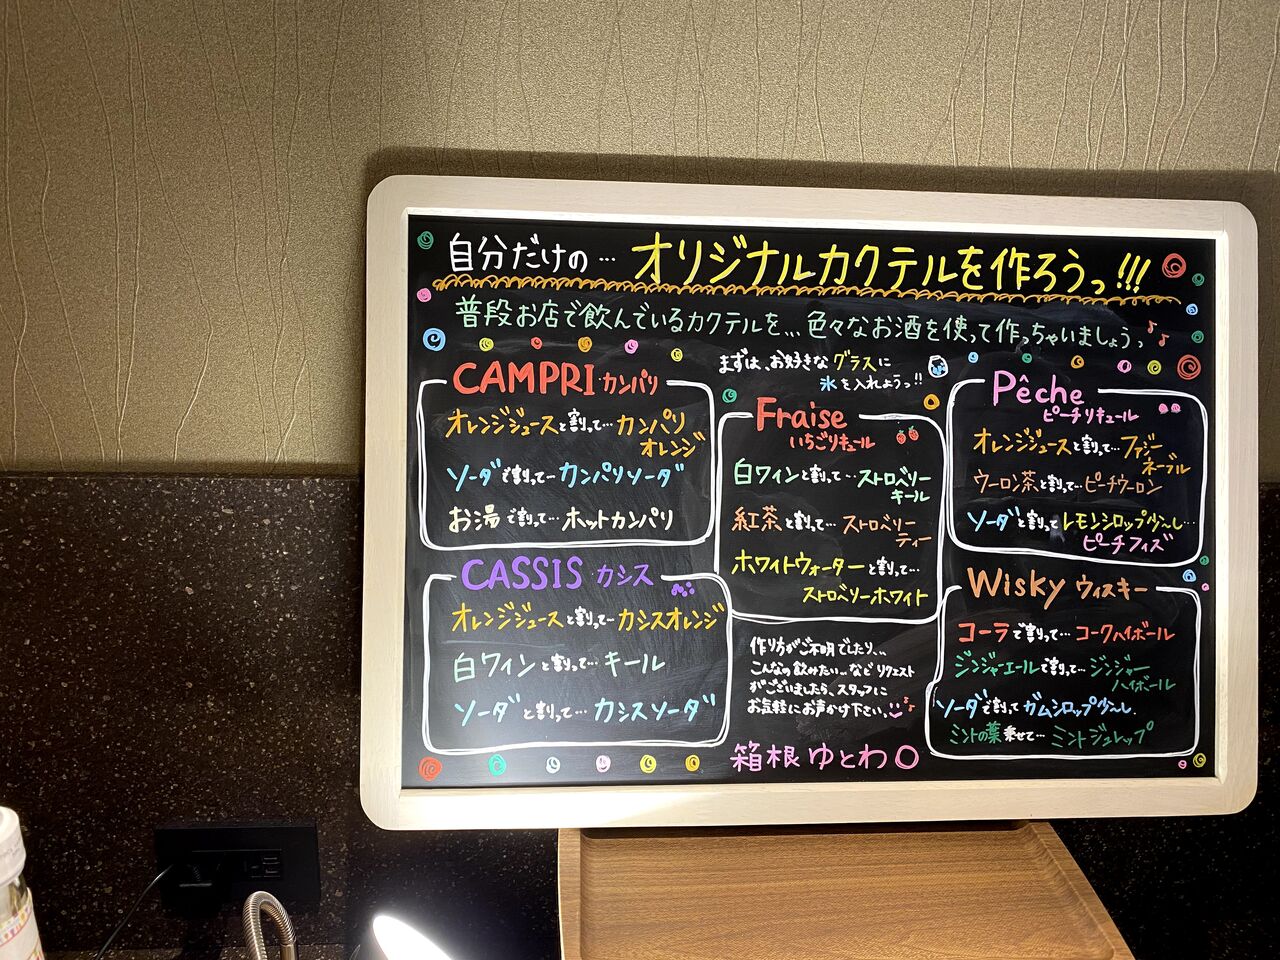 自分だけの… オリジナルカクテルを作ろうっ!!!
普段お店で飲んでいるカクテルを、、、色々なお酒を使って作っちゃいましょうっ♪
まずは、お好きなグラスに
氷を入れようっ!!
CAMPRI カンパリ
オレンジジュースと割って…カンパリ
オレンジ
ソーダで割って…カンパリソーダ
お湯で割って…ホットカンパリ
CASSIS カシス
オレンジジュースと割って…カシスオレンジ
白ワインと割って…キール
ソーダと割って…カシスソーダ
Fraise
いちごリキュール
白ワインと割って…ストロベリー
キール
紅茶と割って…ストロベリー
ティー
ホワイトウォーターと割って…
ストロベリーホワイト
作り方がご不明でしたり、、
こんなの飲みたい…など リクエスト
がございましたら、スタッフに
お気軽にお声かけ下さいっ♪
箱根ゆとわ
Pêche
ピーチリキュール
オレンジジュースと割って…ファジー
ネーブル
ウーロン茶と割って…ピーチウーロン
ソーダと割ってレモンシロップ少〜し…
ピーチフィズ
Wisky ウィスキー
コーラで割って…コークハイボール
ジンジャーエールで割って…ジンジャー
ハイボール
ソーダで割ってガムシロップ少〜し
ミントの葉乗せて…ミントジュレップ